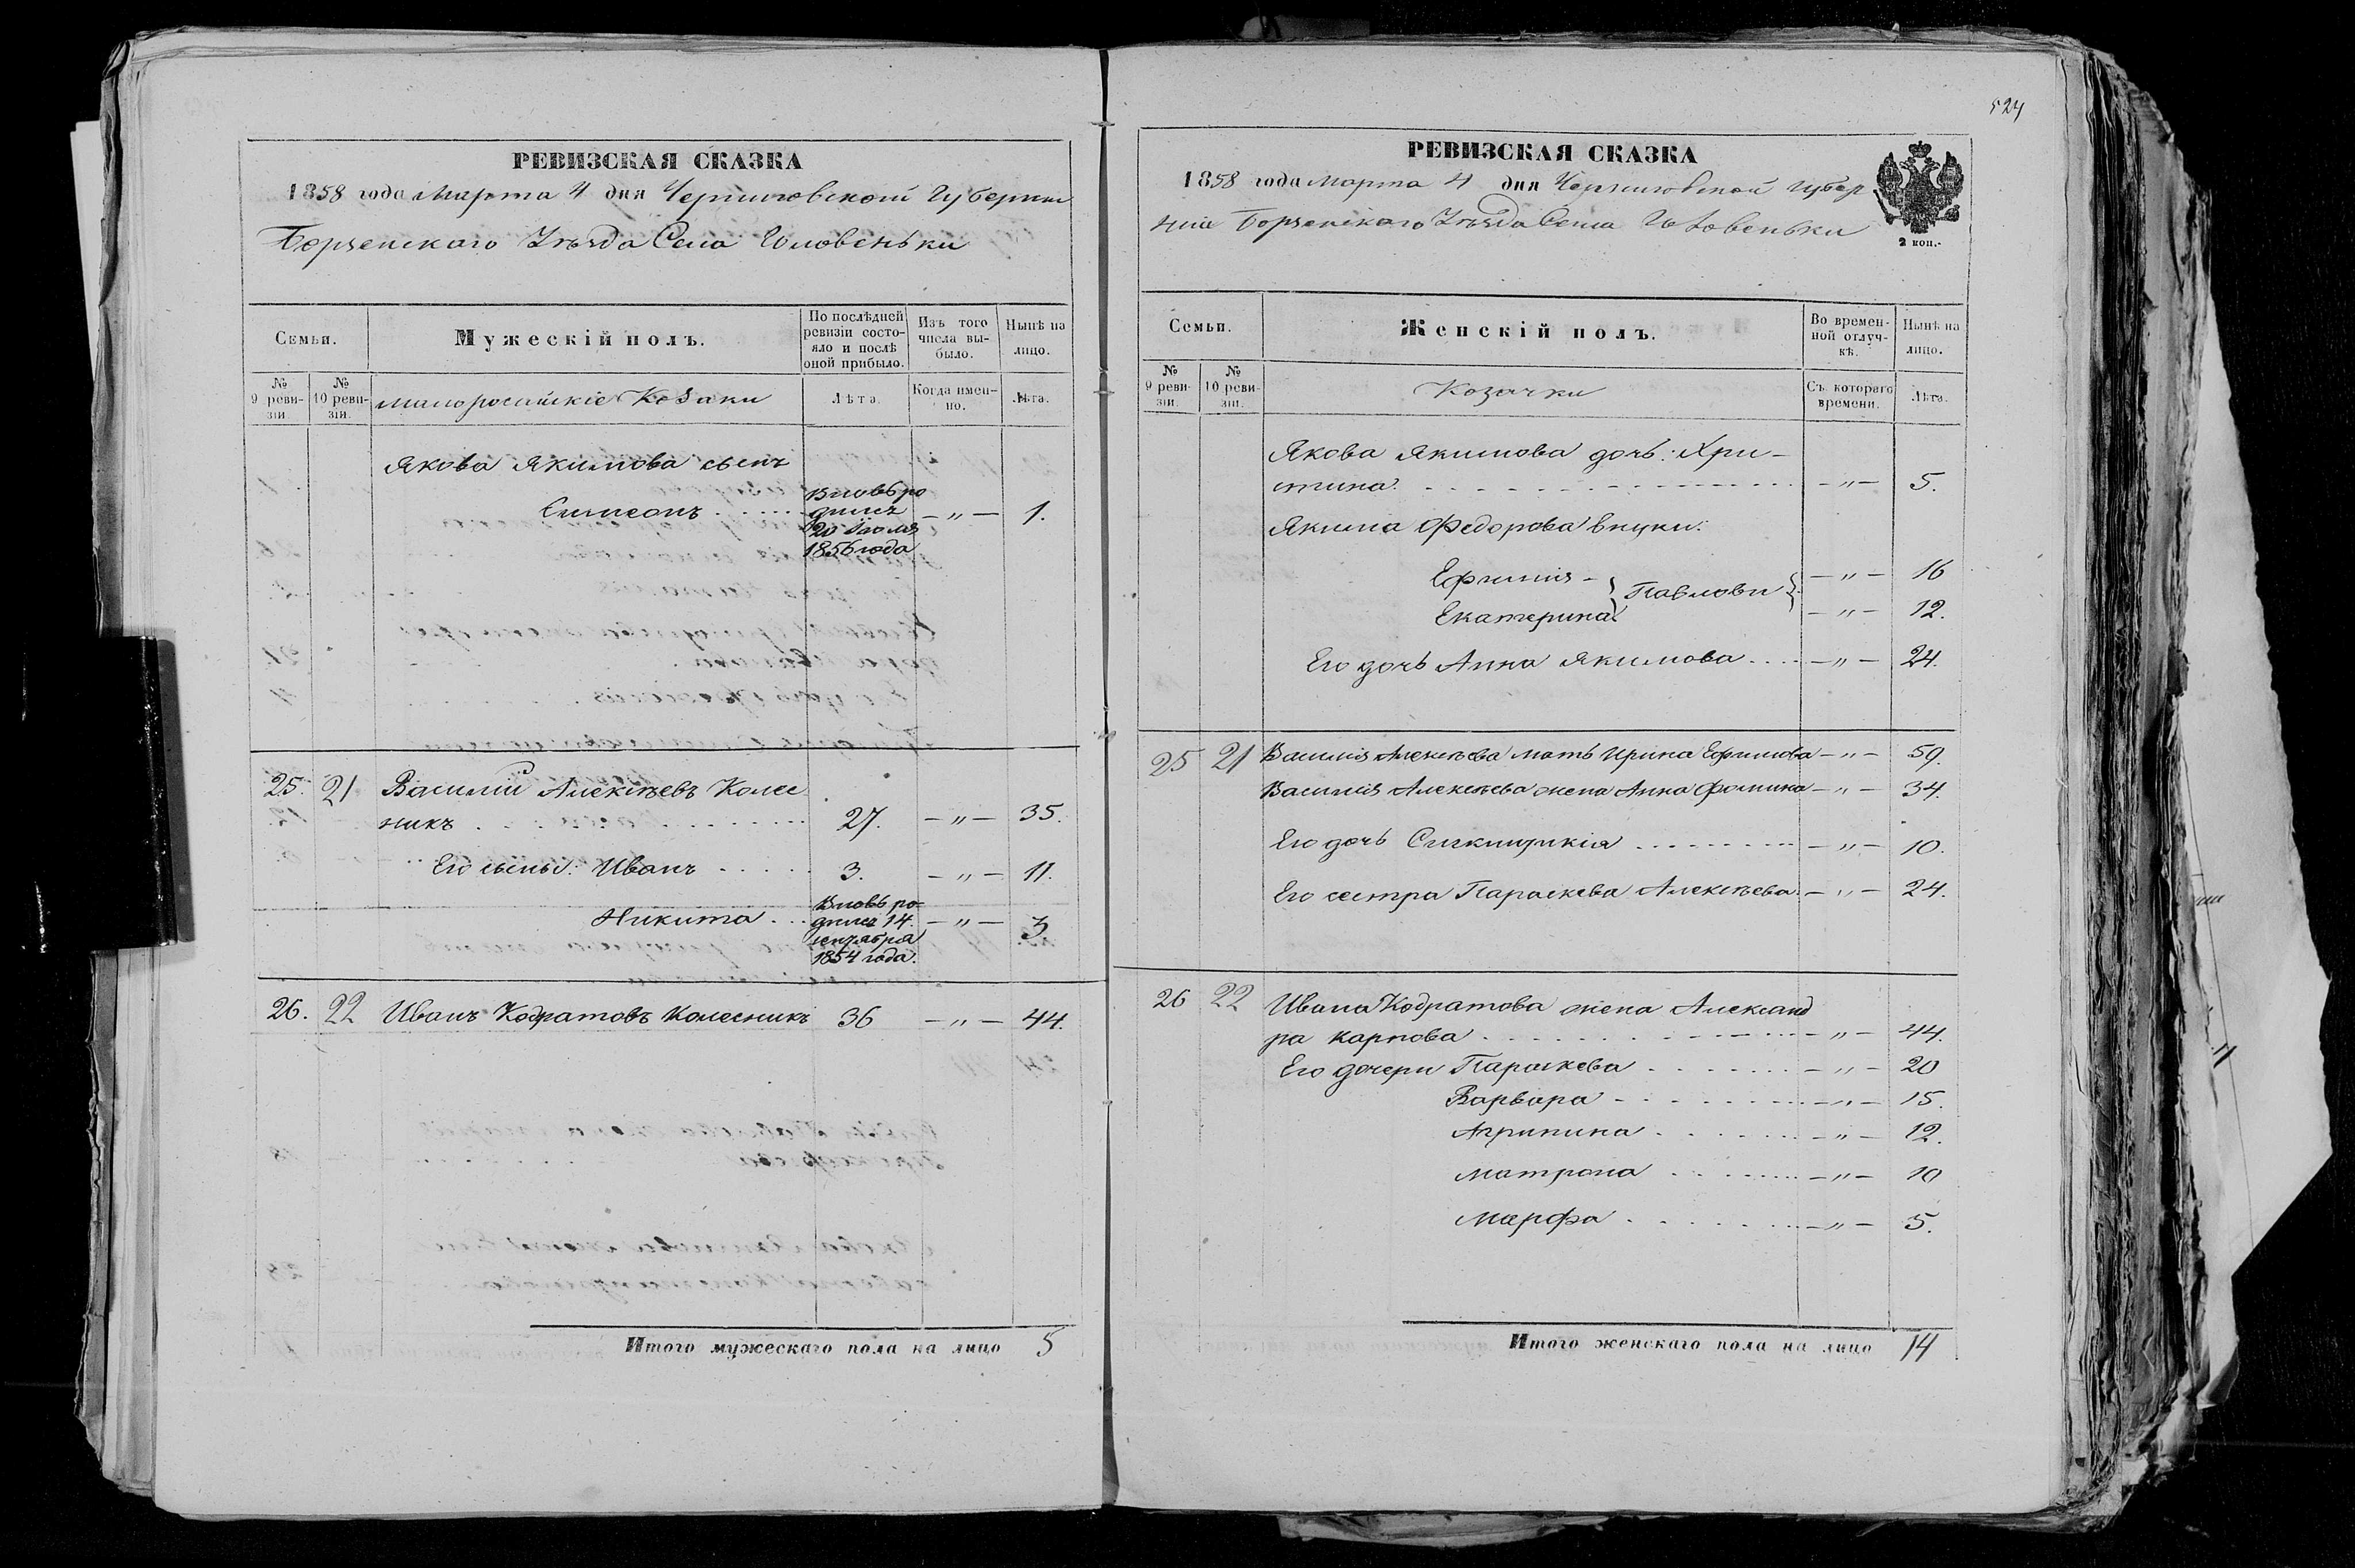 РЕВИЗСКАЯ СКАЗКА
1858 года Марта 4 дня Черниговской Губернии
Борзенскаго Уѣзда Села Головеньки
Семьи.
Мужескій полъ.
По послѣдней ревизіи состояло и послѣ оной прибыло.
Изъ того числа выбыло.
Нынѣ на лицо.
№ 9 ревизіи.
№ 10 ревизіи.
Малоросийскіе Козаки
Лѣта.
Когда именно.
Лѣта.
Якова Якимова сынъ
Симеонъ Вновь родился 20 Iюля 1856 года — „ — 1.
25. 21 Василій Алексѣевъ Колес
никъ 27. — „ — 35.
Его сыны: Иванъ 3. — „ — 11.
Никита Вновь родился 14 сентября 1854 года. — „ — 3.
26. 22 Иванъ Кодратовъ Колесникъ 36 — „ — 44.
Итого мужескаго пола на лицо 5
524
РЕВИЗСКАЯ СКАЗКА
1858 года Марта 4 дня Черниговской Губер
ніи Борзенскаго Уѣзда Села Головеньки
2 коп.
Семьи.
Женскій полъ.
Во временной отлучкѣ.
Нынѣ на лицо.
№ 9 ревизіи.
№ 10 ревизіи.
Козачки
Съ котораго времени.
Лѣта.
Якова Якимова дочь: Хри-
стина — „ — 5.
Якима Федорова внуки:
Ефимия - Павлови — „ — 16
Екатерина — „ — 12.
Его дочь Анна Якимова — „ — 24.
25 21 Василія Алексѣева мать Ирина Ефимова — „ — 59.
Василія Алексѣева жена Анна Фомина — „ — 34.
Его дочь — „ — 10.
Его сестра Параскева Алексѣева — „ — 24.
26 22 Ивана Кодратова жена Александ
ра Карпова — „ — 44.
Его дочери Параскева — „ — 20
Варвара — „ — 15.
Агрипина — „ — 12.
Матрона — „ — 10
Марфа — „ — 5.
Итого женскаго пола на лицо 14